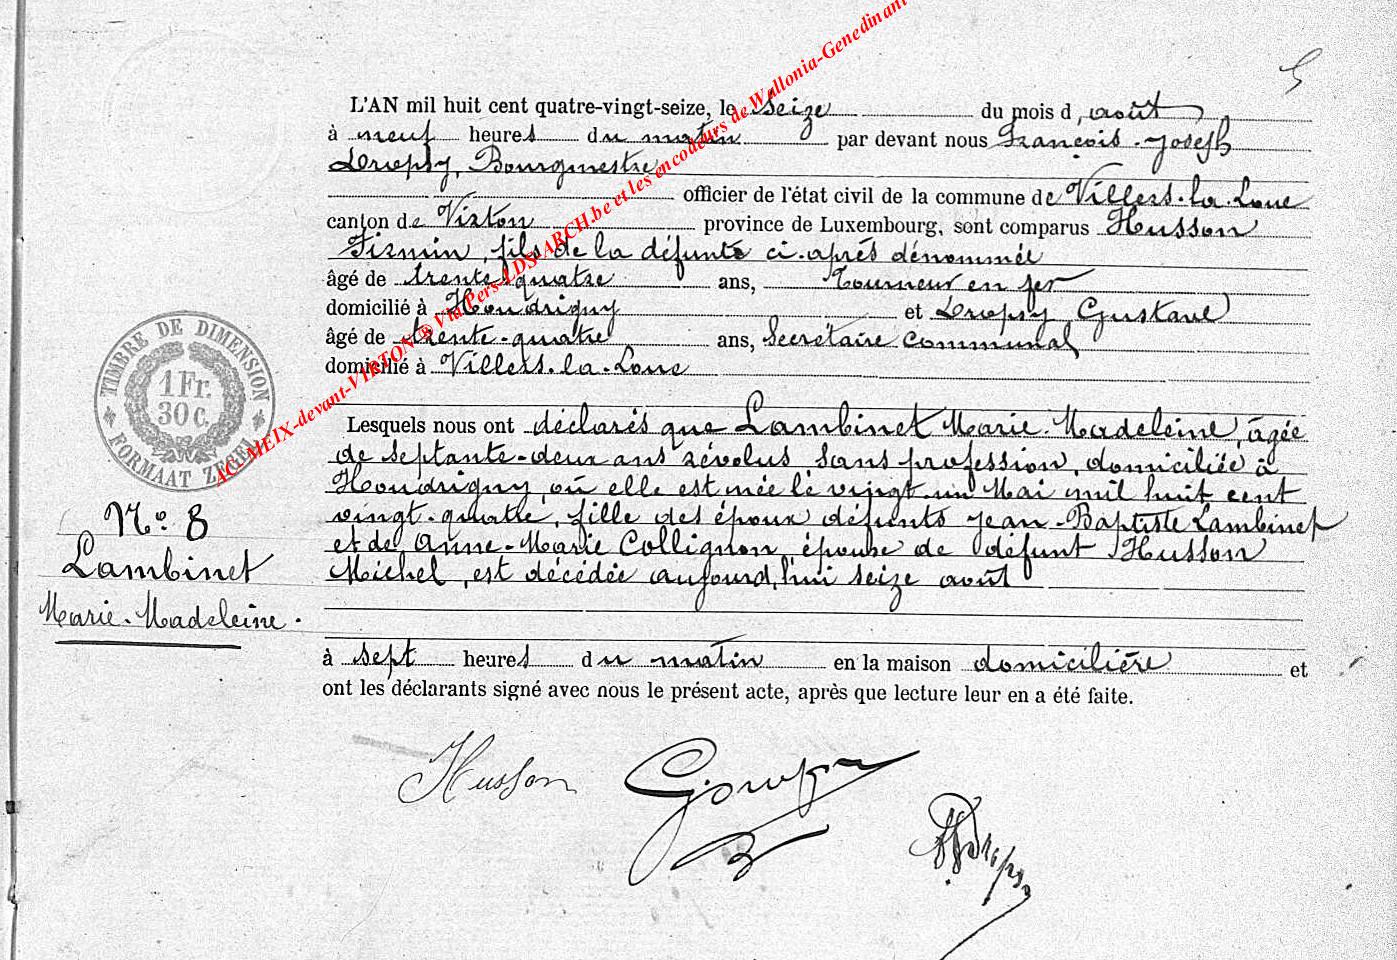 5
L'AN mil huit cent quatre-vingt-seize, le seize du mois d'août
à neuf heures du matin par devant nous François-Joseph
Dropsy, Bourgmestre
officier de l'état civil de la commune de Villers-la-Loue
canton de Virton province de Luxembourg, sont comparus Husson
Firmin, fils de la défunte ci-après dénommée
âgé de trente-quatre ans, Tourneur en fer
domicilié à Houdrigny et Dropsy Gustave
âgé de trente-quatre ans, Secrétaire communal
domicilié à Villers-la-Loue
Lesquels nous ont déclarés que Lambinet Marie-Madeleine, âgée
de septante-deux ans révolus, sans profession, domiciliée à
Houdrigny, où elle est née le vingt-un Mai mil huit cent
vingt-quatre, fille des époux défunts Jean-Baptiste Lambinet
et de Anne-Marie Collignon, épouse de défunt Husson
Michel, est décédée aujourd'hui seize août
à sept heures du matin en la maison domicilière et
ont les déclarants signé avec nous le présent acte, après que lecture leur en a été faite.
TIMBRE DE DIMENSION
1 Fr.
30 c.
FORMAAT ZEGEL
No. 8
Lambinet
Marie-Madeleine.
Husson
G Dropsy
FJ Dropsy
AC MEIX-devant-VIRTON ® Via Pers-LDS-ARCH.be et les encodeurs de Wallonia-Genedinant